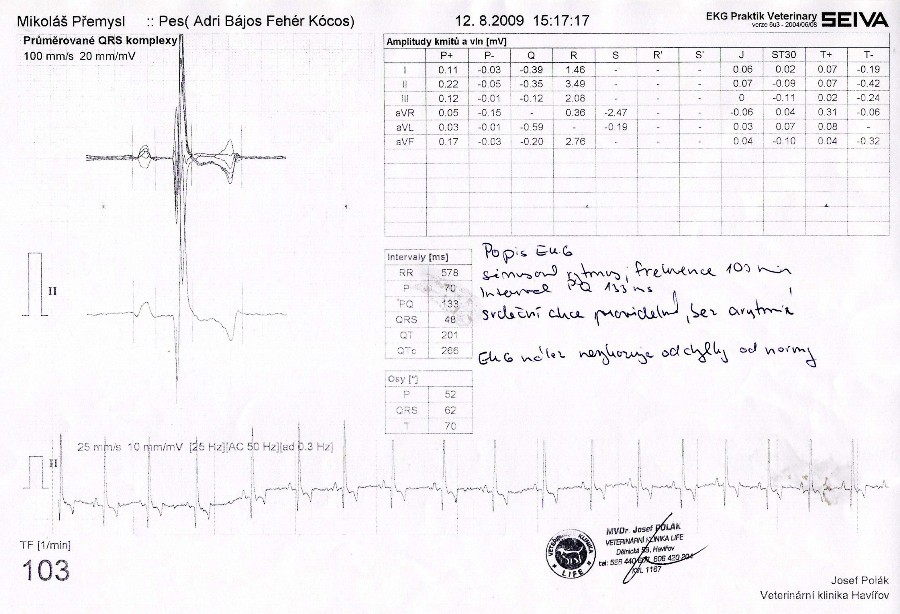 Mikoláš Přemysl :: Pes( Adri Bájos Fehér Kócos) 12. 8.2009 15:17:17 EKG Praktik Veterinary SEIVA
verze 6u3 - 2004/06/08
Průměrované QRS komplexy
100 mm/s 20 mm/mV
Amplitudy kmitů a vln [mV]
P+ P- Q R S R' S' J ST30 T+ T-
I 0.11 -0.03 -0.39 1.46 - - - 0.06 0.02 0.07 -0.19
II 0.22 -0.05 -0.35 3.49 - - - 0.07 -0.09 0.07 -0.42
III 0.12 -0.01 -0.12 2.08 - - - 0 -0.11 0.02 -0.24
aVR 0.05 -0.15 - 0.36 -2.47 - - -0.06 0.04 0.31 -0.06
aVL 0.03 -0.01 -0.59 - -0.19 - - 0.03 0.07 0.08 -
aVF 0.17 -0.03 -0.20 2.76 - - - 0.04 -0.10 0.04 -0.32
II
Intervaly [ms]
RR 578
P 70
PQ 133
QRS 48
QT 201
QTc 266
Popis EKG
sinusový rytmus, frekvence 103 min
Interval PQ 133 ms
srdeční akce pravidelná, bez arytmie
EKG nález nevykazuje odchylky od normy
Osy [°]
P 52
QRS 62
T 70
25 mm/s 10 mm/mV [25 Hz][AC 50 Hz][ad 0.3 Hz]
II
TF [1/min]
103
VETERINÁRNÍ KLINIKA
LIFE
MVDr. Josef POLÁK
VETERINÁRNÍ KLINIKA LIFE
Dělnická Havířov
KVL 1167
Josef Polák
Veterinární klinika Havířov